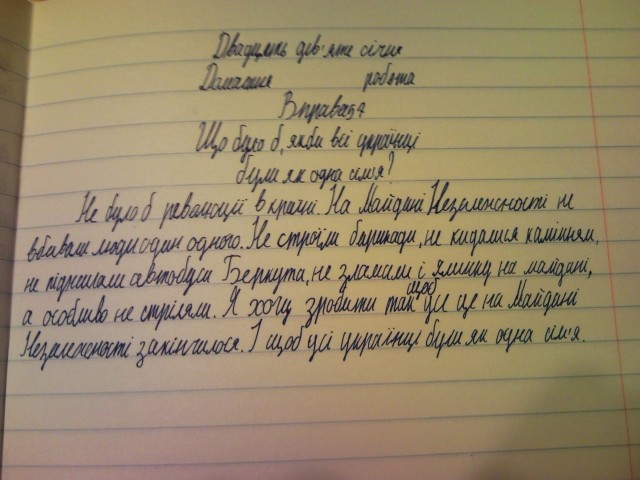 Двадцять дев'яте січня
Домашня робота
Вправа 54
Що було б, якби всі українці
були як одна сім'я?
Не було б революції в країні. На Майдані Незалежності не
вбивали люди один одного. Не строїли барикади, не кидалися камінням,
не підпалювали автобуси Беркута, не зламали і ялинку на майдані,
а особливо не стріляли. Я хочу зробити так щоб усе це на Майдані
Незалежності закінчилося. І щоб усі українці були як одна сім'я.